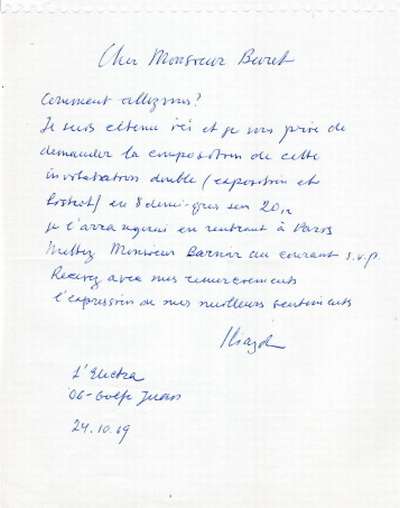 Cher Monsieur Beuret
Comment allez vous?
Je suis retenu ici et je vous prie de
demander la composition de cette
invitation double (exposition et
bistrot) en 8 demi-gras sur 20,
je l'arrangerai en rentrant à Paris
Mettez Monsieur Barnier au courant s.v.p.
Recevez avec mes remerciements
l'expression de mes meilleurs sentiments
Iliazd
L'Electra
06-Golfe Juan
24.10.69